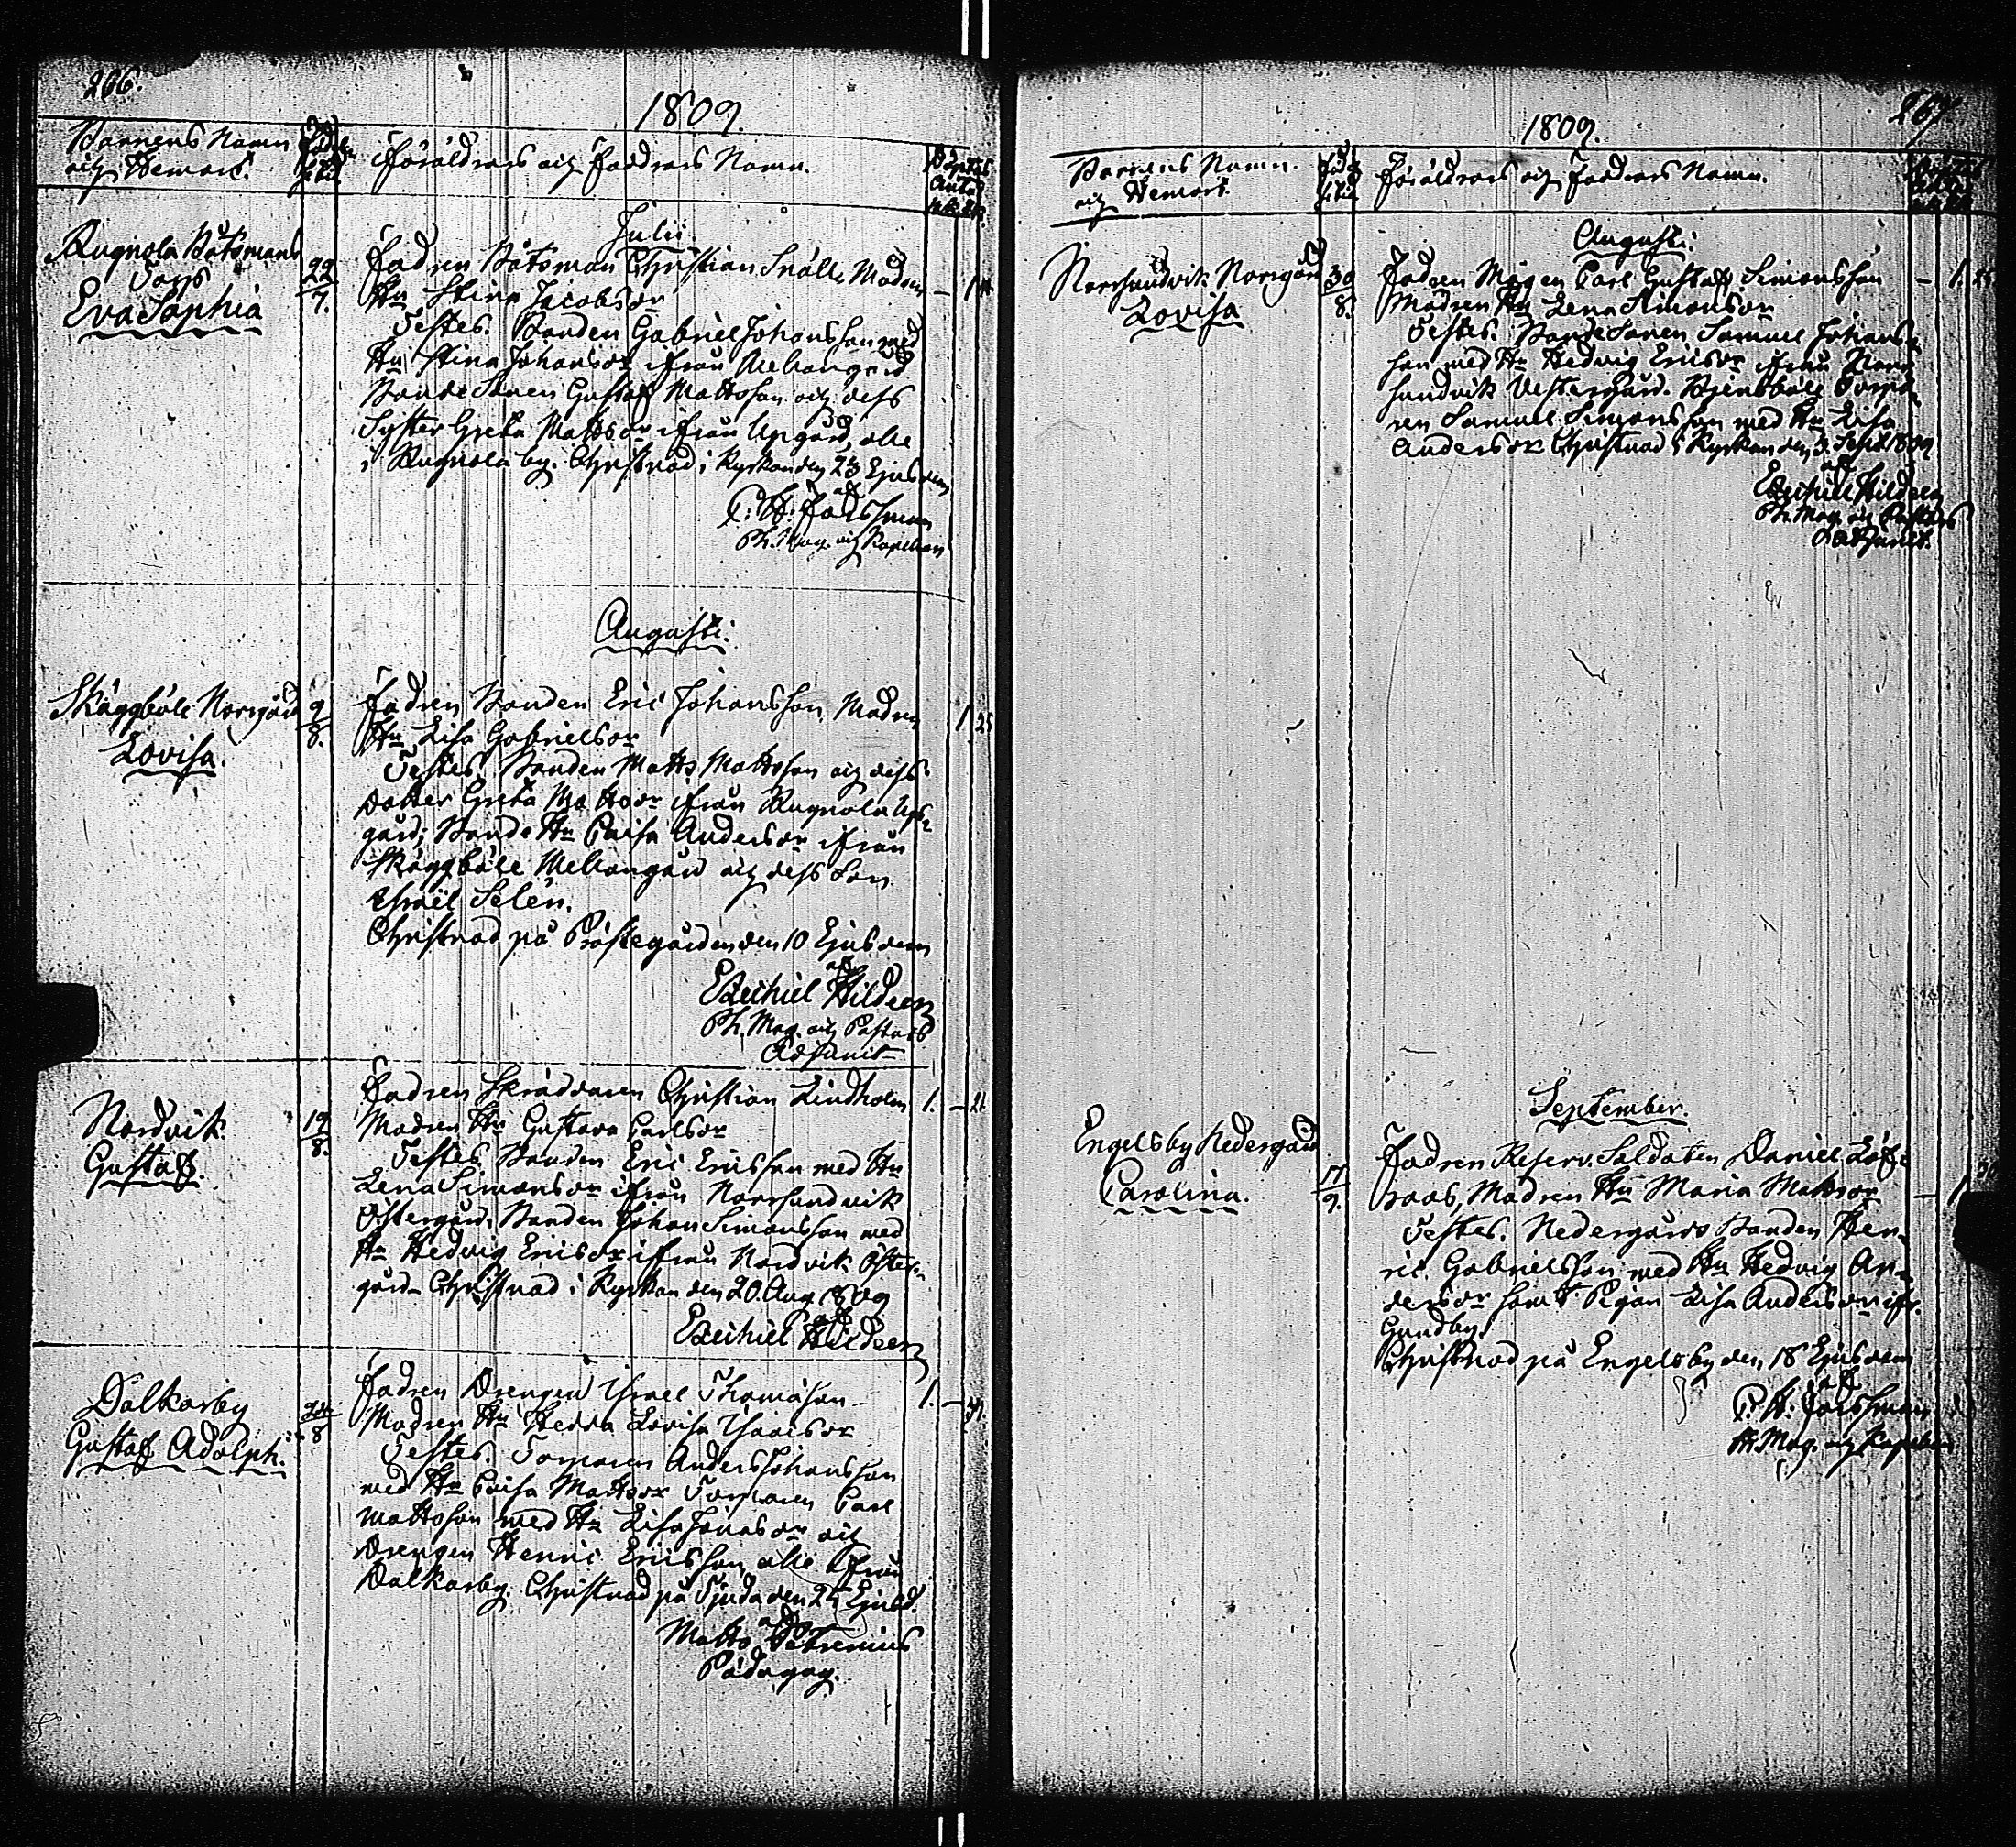 266.
1809.
Barnens Namn
och Hemort.
Föräldrars och Faddrars Namn.
Julii
Rugnola Båtsmans
Torp
Eva Sophia
22
7.
Fadren Båtsman Christian Snäll, Modren
Hu Stina Jacobsdr
Testes. Bonden Gabriel Johansson med
Hu Stina Johansdr ifrån Mellangård
Bonde Sonen Gustaf Mattsson och dess
Syster Greta Mattsdr ifrån Upgård, alle
i Rugnola by. Christnad i Kyrkan den 23 Ejusdem
af
P. H. Forssman
Ph. Mag. och Kapellan
Augusti.
Skåggböle Norrgård
Lovisa.
9
8.
Fadren Bonden Eric Johansson, Modren
Hu Lisa Gabrielsdr
Testes. Bonden Matts Mattsson och dess
Dotter Greta Mattsdr ifrån Rugnola Up-
gård; Bonde Hu Caisa Andersdr ifrån
Skåggböle Mellangård och dess Son
Israël Selén.
Christnad på Prästegården den 10 Ejusdem
af
Ezechiel Hildeen
Ph. Mag. och Pastors
Adjunct
1. 25
Nordvik
Gustaf.
19
8.
Fadren Skräddaren Christian Lindholm
Modren Hu Gustava Carlsdr
Testes Bonden Eric Ericsson med Hu
Lena Simonsdr ifrån Norrsundvik
Östergård. Bonden Johan Simonsson med
Hu Hedvig Ericsdr ifrån Nordvik Öster-
gård Christnad i Kyrkan den 20. Aug 1809
af
Ezechiel Hildeen
1. – 21
Dalkarby
Gustaf Adolph.
24
8
Fadren Drengen Israel Thomasson
Modren Hu Hedda Lovisa Isacsdr
Testes. Torparen Anders Johansson
med Hu Caisa Mattsdr Torparen Carl
Mattsson med Hu Lisa Jonasdr och
Drengen Henric Ericsson, alle ifrån
Dalkarby. Christnad på Tjuda den 25 Ejusd.
af
Matts Petrenius
Pädagog.
267
1809.
Barnens Namn.
och Hemort.
Föräldrars och Faddrars Namn.
Augusti.
Norrsundvik Norrgård
Lovisa
30
8.
Fadren Mågen Carl Gustaf Simonsson
Modren Hu Lena Simonsdr
Testes. Bonde Sonen Samuel Johans-
son med Hu Hedvig Ericsdr ifrån Norr
sundvik Vestergård. Bjensböle Torpa-
ren Samuel Simonsson med Hu Lisa
Andersdr Christnad i Kyrkan den 3. Sept 1809
af
Ezechiel Hildeen
Ph. Mag. och Pastors
Adjunct.
– 1. 25
September.
Engelsby Nedergård
Carolina.
17
9.
Fadren Reserv. Soldaten Daniel Löf-
roos, Modren Hu Maria Mattsdr
Testes. Nedergårds Bonden Hen-
ric Gabrielsson med Hu Hedvig An-
dersdr samt Pigan Lisa Andersdr ifr.
Gundby.
Christnad på Engelsby den 18 Ejusdem
af
P. H. Forssman
Ph. Mag. och Kapellan